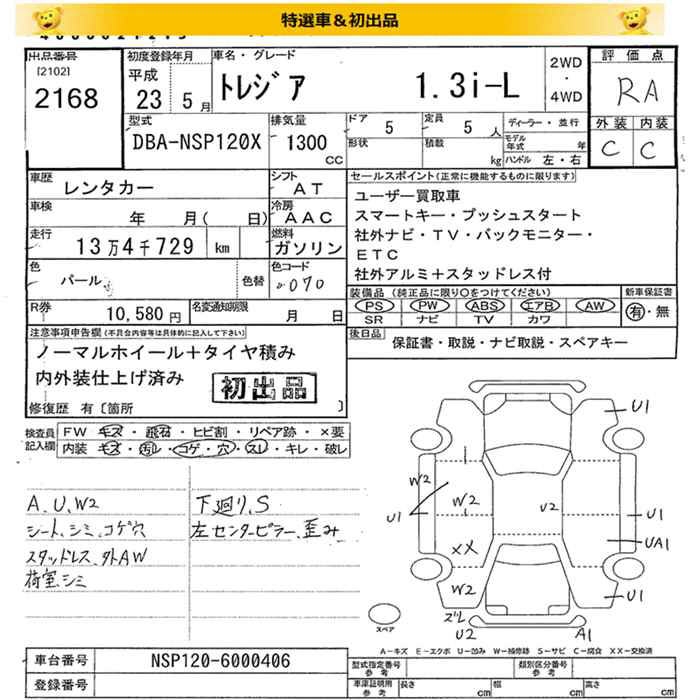 特選車＆初出品
出品番号
[2102]
2168
初度登録年月
平成
23 5月
車名・グレード
トレジア 1.3i-L
2WD
・
4WD
評価点
RA
外装 内装
C C
型式
DBA-NSP120X
排気量
1300
CC
ドア 5
定員 5 人
形状
積載 kg
ディーラー・並行
モデル年式 年
ハンドル 左・右
車歴 レンタカー
シフト AT
車検 年 月( 日)
冷房 AAC
走行 13万4千729 km
燃料 ガソリン
色 パール
色替
色コード 070
R券 10,580円
名変通知期限 月 日
セールスポイント(正常に機能するものに限ります)
ユーザー買取車
スマートキー・プッシュスタート
社外ナビ・TV・バックモニター・
ETC
社外アルミ＋スタッドレス付
装備品 (純正品に限り○をつけてください)
PS PW ABS エアB AW
SR ナビ TV カワ
新車保証書
有・無
後日品 保証書・取説・ナビ取説・スペアキー
注意事項申告欄(不具合内容等は具体的に記入して下さい)
ノーマルホイール＋タイヤ積み
内外装仕上げ済み
初出品
修復歴 有〔箇所 〕
検査員記入欄
FW キズ・飛石・ヒビ割・リペア跡・×要
内装 キズ・汚レ・コゲ・穴・スレ・キレ・破レ
A、U、W2
シート、シミ、コゲ穴
スタッドレス、外AW
荷室、シミ
下廻り、S
左センターピラー、歪み
U1
W2
U1
W2
XX
W2
U2
U1
UA1
U1
ズレ
U2
A1
スペア
A-キズ E-エクボ U-凹み W-補修跡 S-サビ C-腐食 XX-交換済
車台番号 NSP120-6000406
登録番号
型式指定番号
参考
類別区分番号
参考
車庫証明用
参考
長さ cm
幅 cm
高さ cm